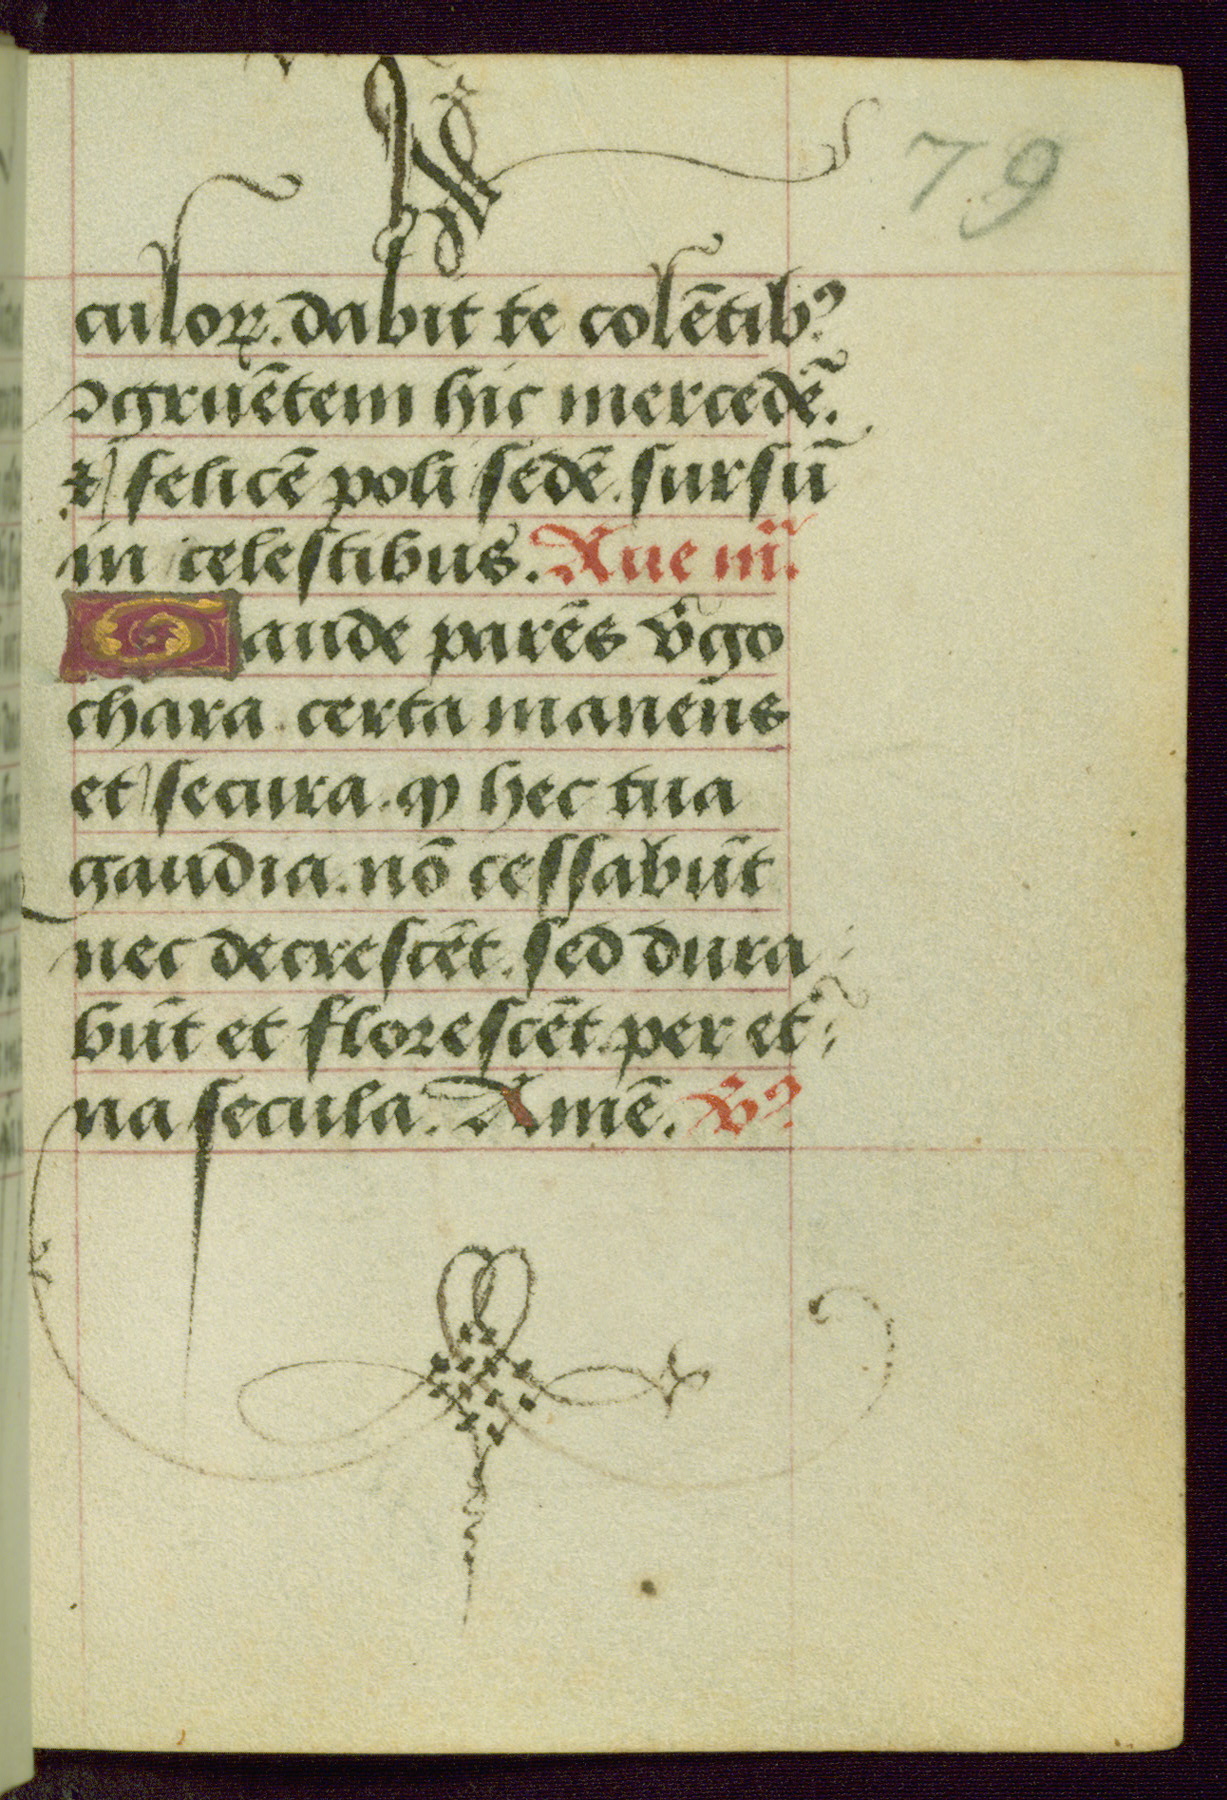 79
culoꝝ. dabit te colētibꝰ
ꝯgruētem hic mercedē.
⁊ felicē poli sedē. sursū
in celestibus. Aue m̄.
Gaude parēs v̄go
chara. certa manens
et secura. ꝙ hec tua
gaudia. nō cessabūt
nec decrescēt. sed dura
būt et florescēt. per et
na secula. Amē. Vꝰ